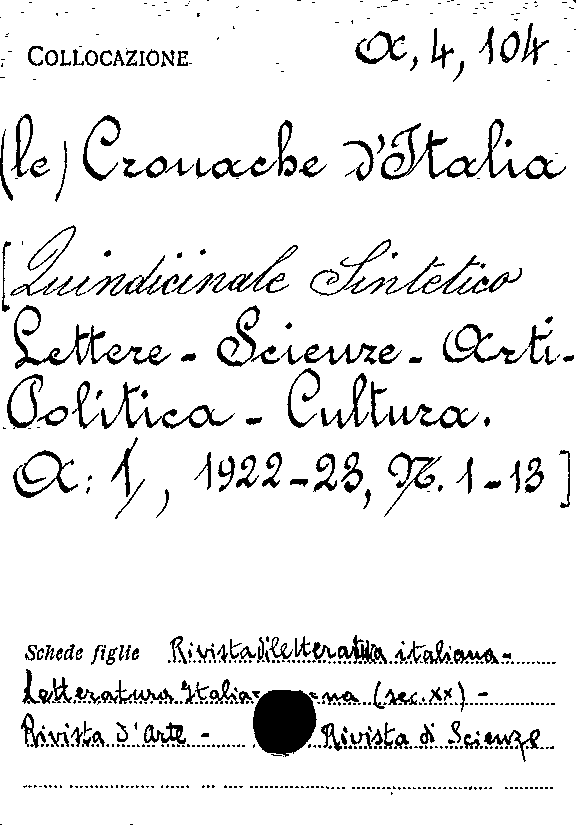 COLLOCAZIONE A, 4, 104
(le) Cronache d'Italia
[Quindicinale Sintetico
Lettere - Scienze - Arti -
Politica - Cultura.
A: 1, 1922-23, N. 1-13]
Schede figlie Rivista di letteratura italiana -
Letteratura Italia na (sec. xx) -
Rivista d'Arte - Rivista di Scienze